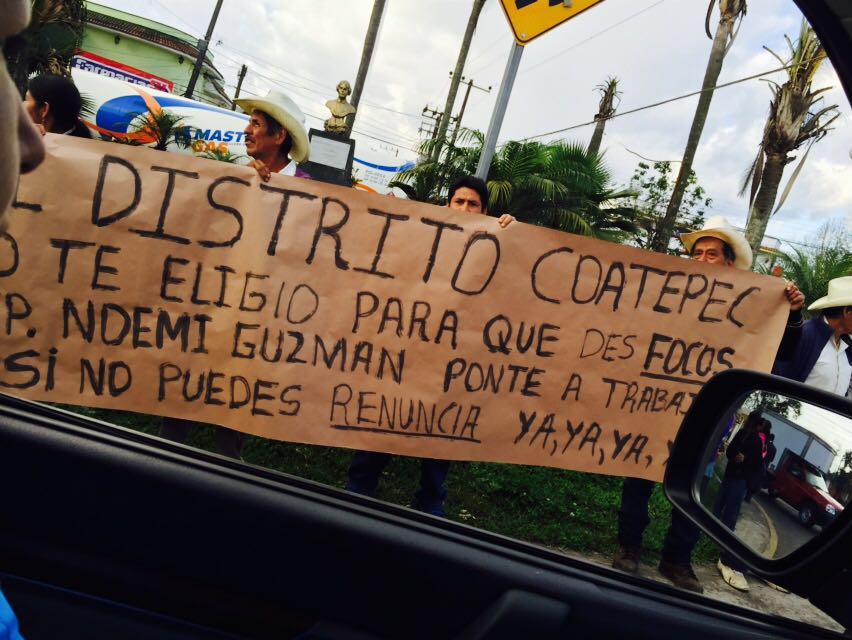 Farmacias
MAST
GAS
L DISTRITO COATEPEC
O TE ELIGIO PARA QUE DES FOCOS
P. NOEMI GUZMAN PONTE A TRABAJ
SI NO PUEDES RENUNCIA YA, YA, YA,